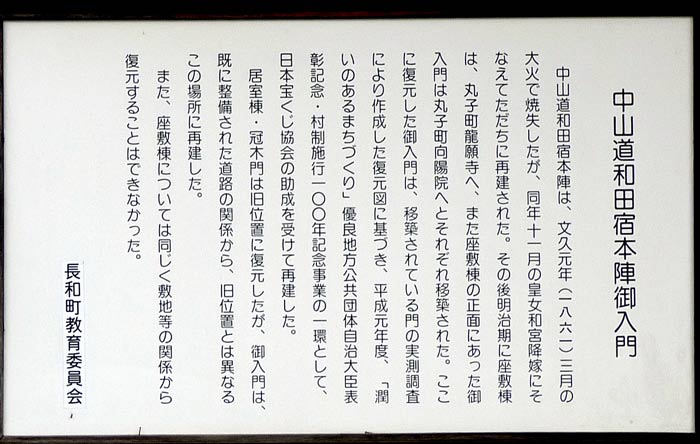 中山道和田宿本陣御入門
中山道和田宿本陣は、文久元年（一八六一）三月の
大火で焼失したが、同年十一月の皇女和宮降嫁にそ
なえてただちに再建された。その後明治期に座敷棟
は、丸子町龍願寺へ、また座敷棟の正面にあった御
入門は丸子町向陽院へとそれぞれ移築された。ここ
に復元した御入門は、移築されている門の実測調査
により作成した復元図に基づき、平成元年度、「潤
いのあるまちづくり」優良地方公共団体自治大臣表
彰記念・村制施行一〇〇年記念事業の一環として、
日本宝くじ協会の助成を受けて再建した。
居室棟・冠木門は旧位置に復元したが、御入門は、
既に整備された道路の関係から、旧位置とは異なる
この場所に再建した。
また、座敷棟については同じく敷地等の関係から
復元することはできなかった。
長和町教育委員会